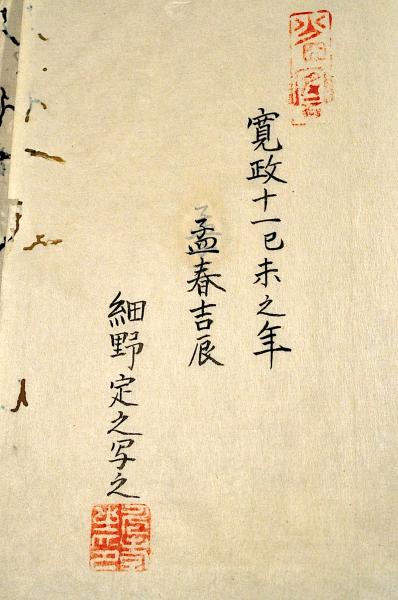 寛政十一己未之年
孟春吉辰
細野定之写之